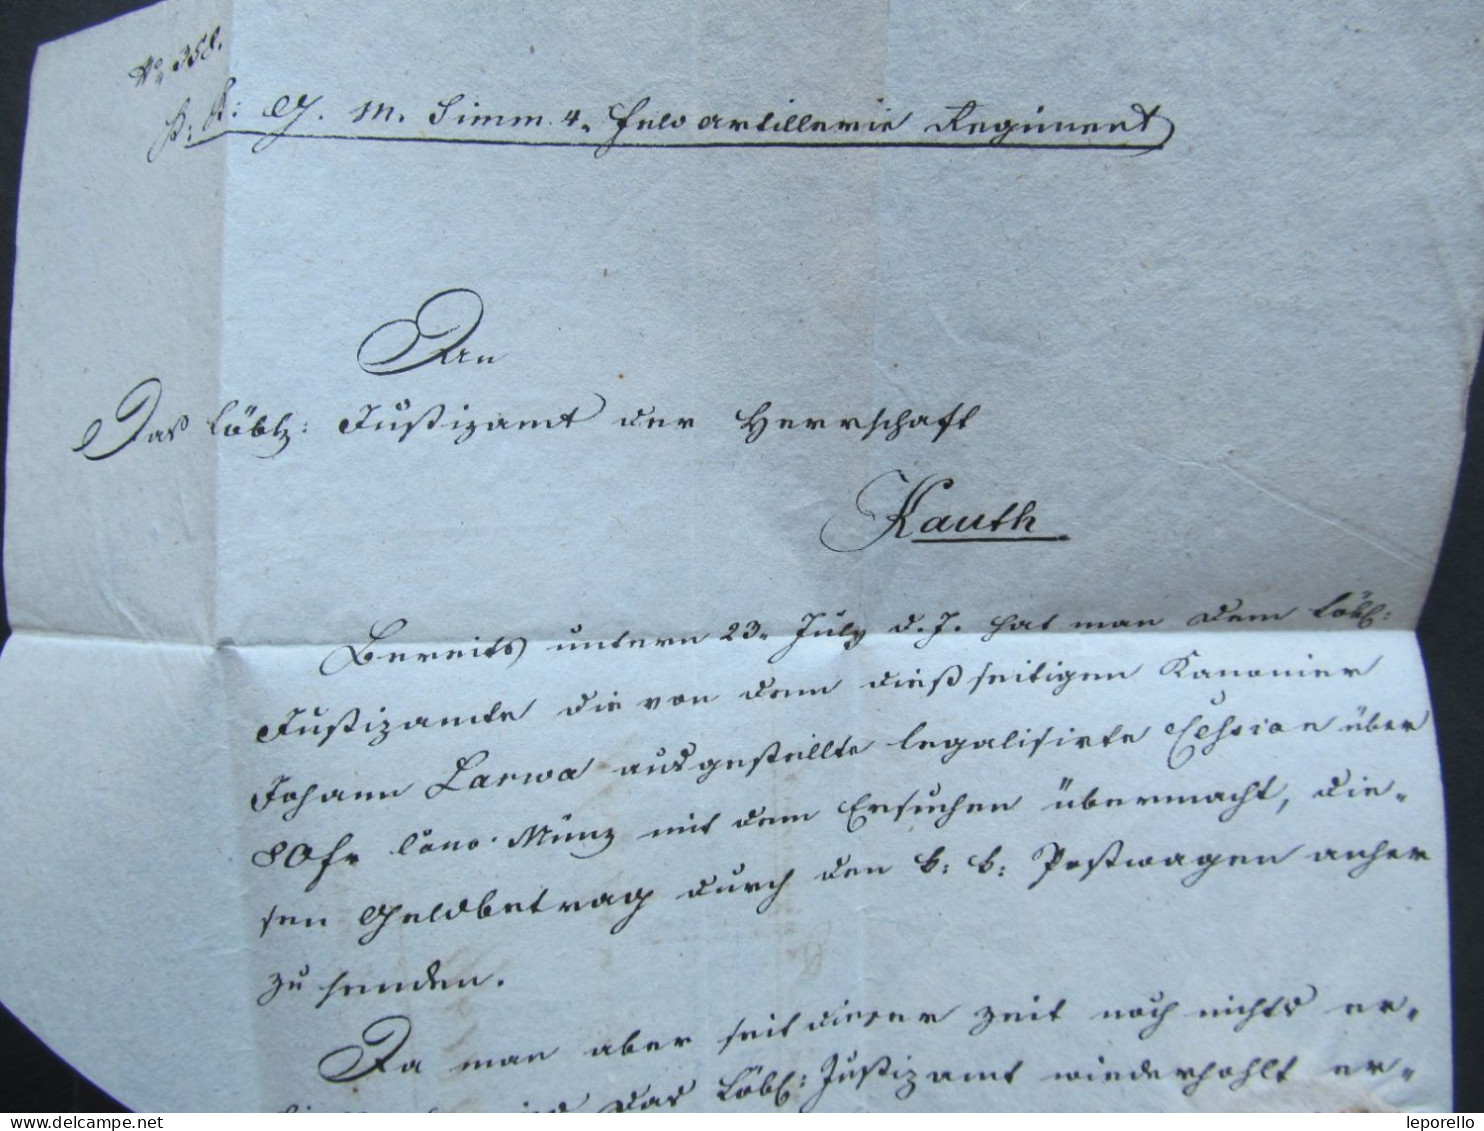 No 358.
K: K: G. M. Simm 4. Feld Artillerie Regiment
An
Das Löbl: Justizamt der Herrschaft
Kauth
Bereits untern 23. July d. J. hat man dem Löbl:
Justizamte die von dem dießseitigen Kanonier
Johann Larwa ausgestellte legalisirte Cession über
80 fr Conv. Münz mit dem Ersuchen übermacht, die-
sen Geldbetrag durch den k: k: Postwagen anher
zu senden.
Da man aber seit dieser Zeit noch nichts er-
das Löbl: Justizamt wiederhohlt er-
leporello